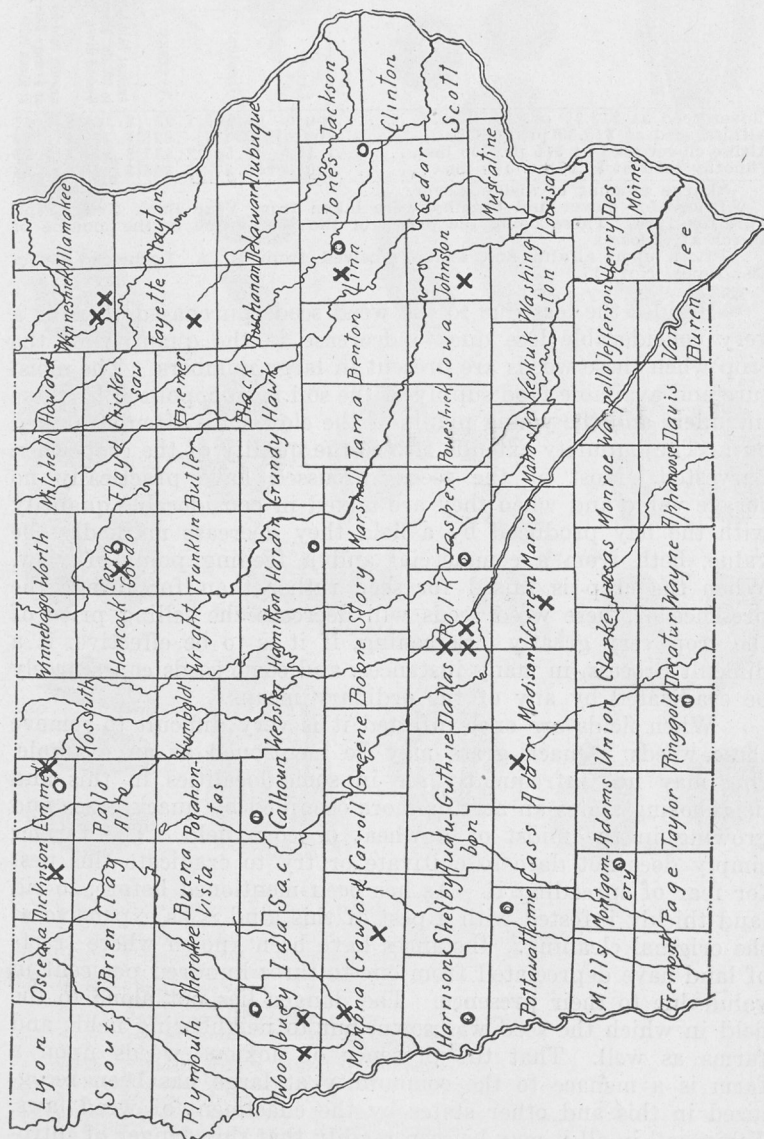 Lyon Osceola Dickinson Emmit Winnebago Worth Mitchell Howard Winneshiek Allamakee
Sioux O'Brien Clay Palo
Alto Kossuth Hancock Cerro
Gordo Floyd Chicka
saw Fayette Clayton
Plymouth Cherokee Buena
Vista Pocahontas Humboldt Wright Franklin Butler Bremer
Woodbury Ida Sac Calhoun Webster Hamilton Hardin Grundy Black
Hawk Buchanan Delaware Dubuque
Monona Crawford Carroll Greene Boone Story Marshall Tama Benton Linn Jones Jackson
Clinton
Cedar
Scott
Harrison Shelby Audu
bon Guthrie Dallas Polk Jasper Poweshiek Iowa Johnston Muscatine
Pott Cass Adair Madison Warren Marion Mahaska Keokuk Washing
ton Louisa
Mills Montgom
ery Adams Union Clarke Lucas Monroe Wapello Jefferson Henry Des
Moines
Fremont Page Taylor Ringgold Decatur Wayne Appanoose Davis Van
Buren Lee